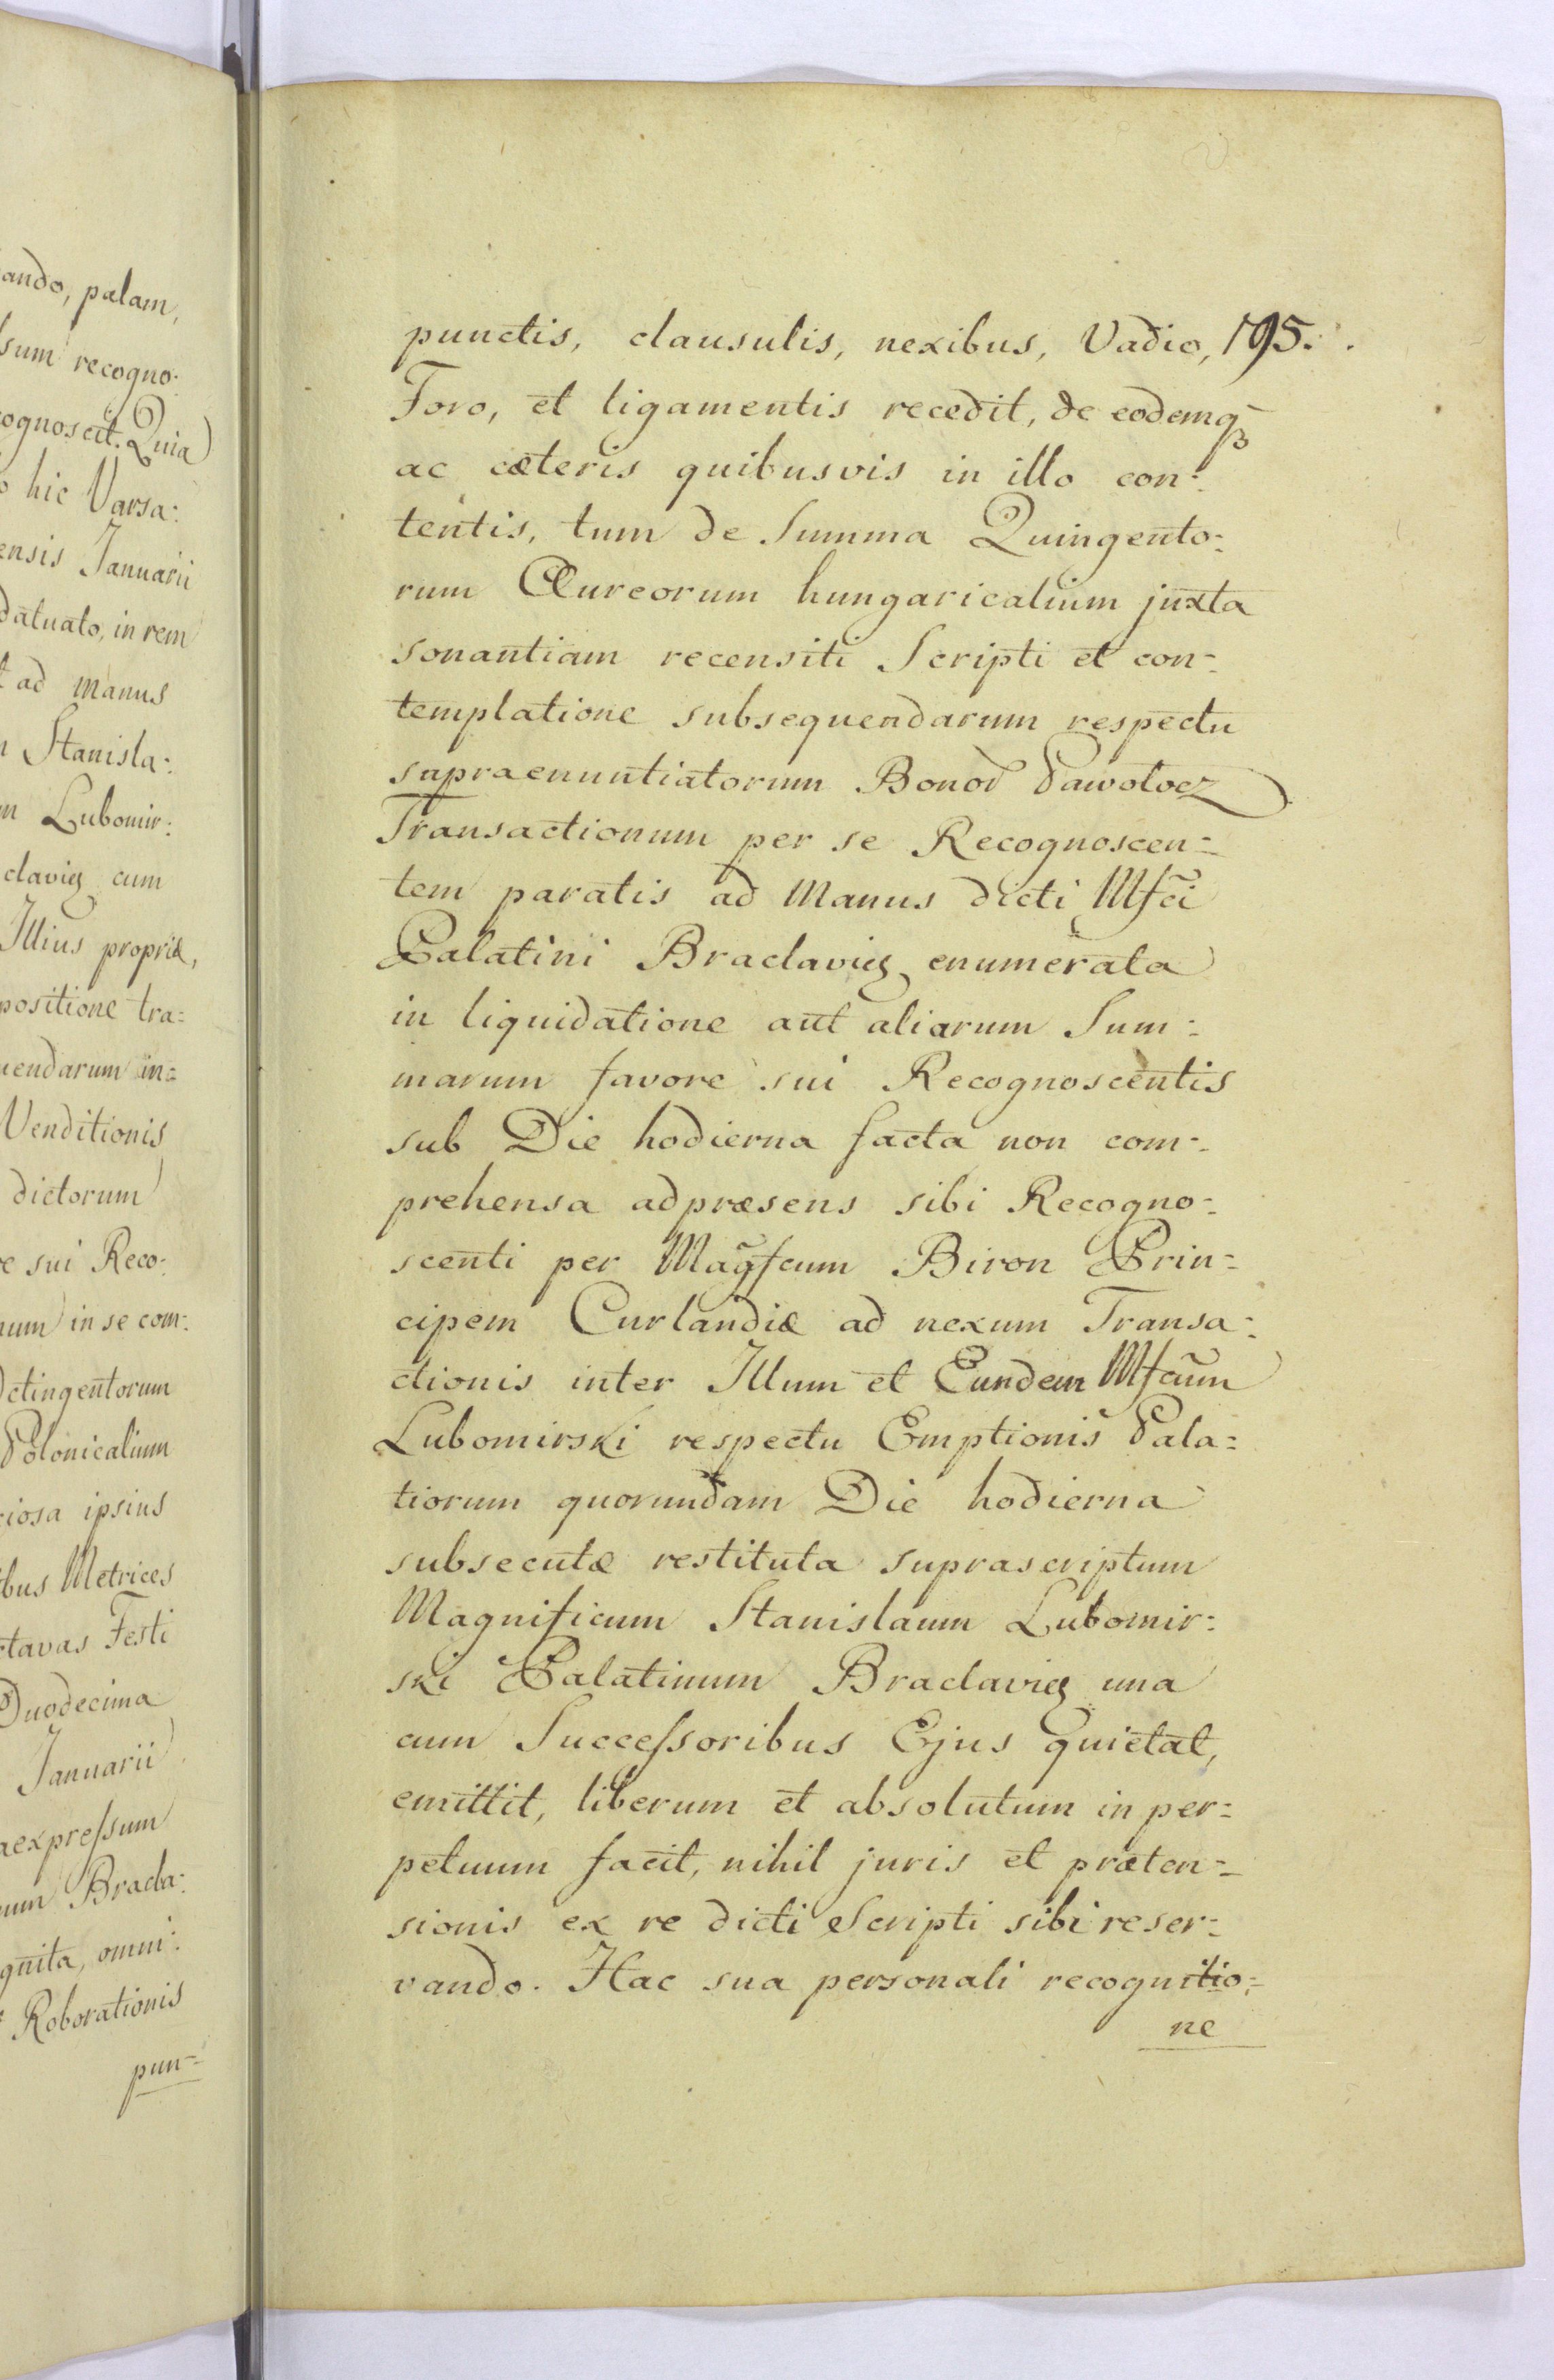 ando, palam,
sum recogno:
cognoscit. Quia
hic Varsa:
ensis Januarii
datuato, in rem
ad manus
Stanisla:
Lubomir:
claviæ cum
Illius propria,
positione tra=
uendarum in=
Venditionis
dictorum
sui Reco:
num in se com:
ctingentorum
Polonicalium
ciosa ipsius
ibus Metrices
ctavas Festi
Duodecima
Januarii
aexpreſsum
Bracla:
gnita, omni:
Roborationis
pun=
punctis, clausulis, nexibus, Vadio, 195.
Foro, et ligamentis recedit, de eodemqꝫ
ac cæteris quibusvis in illo con:
tentis, tum de Summa Quingento:
rum Aureorum hungaricalium juxta
sonantiam recensiti Scripti et con=
templatione subsequendarum respectu
supraenuntiatorum Bonor̃ Pawołocz
Transactionum per se Recognoscen=
tem paratis ad Manus dicti Mfc̃i
Palatini Braclaviꝫ enumerata
in liquidatione aut aliarum Sum:
marum favore sui Recognoscentis
sub Die hodierna facta non com=
prehensa ad præsens sibi Recogno:
scenti per Mag̃fcum Biron Prin=
cipem Curlandiæ ad nexum Transa:
ctionis inter Illum et Eundem Mfcũm
Lubomirski respectu Emptionis Pala=
tiorum quorundam Die hodierna
subsecutæ restituta suprascriptum
Magnificum Stanislaum Lubomir:
ski Palatinum Braclaviꝫ una
cum Succeſsoribus Ejus quietat,
emittit, liberum et absolutum in per=
petuum facit, nihil juris et præten=
sionis ex re dicti Scripti sibi reser=
vando. Hac sua personali recognitio=
ne